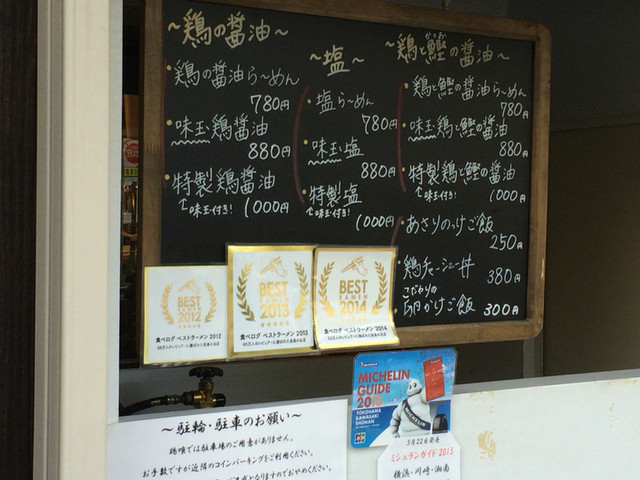 ～鶏の醤油～
・鶏の醤油らーめん
780円
・味玉鶏醤油
880円
・特製鶏醤油
↑味玉付き! 1000円
～塩～
・塩らーめん
780円
・味玉塩
880円
・特製塩
↑味玉付き!
1000円
かつお
～鶏と鰹の醤油～
・鶏と鰹の醤油らーめん
780円
・味玉鶏と鰹の醤油
880円
・特製鶏と鰹の醤油
↑味玉付き! 1000円
・あさりのっけご飯
250円
・鶏チャーシュー丼 380円
こだわりの
卵かけご飯 300円
BEST
RAMEN
2012
食べログ ベストラーメン 2012
BEST
RAMEN
2013
食べログ ベストラーメン 2013
BEST
RAMEN
2014
食べログ ベストラーメン 2014
MICHELIN
GUIDE
2015
YOKOHAMA
KAWASAKI
SHONAN
5月22日発売
ミシュランガイド 2015
横浜・川崎・湘南
～駐輪・駐車のお願い～
では駐車場のご用意がありません。
お手数ですが近隣のコインパーキングをご利用ください。
となりますのでおやめください。